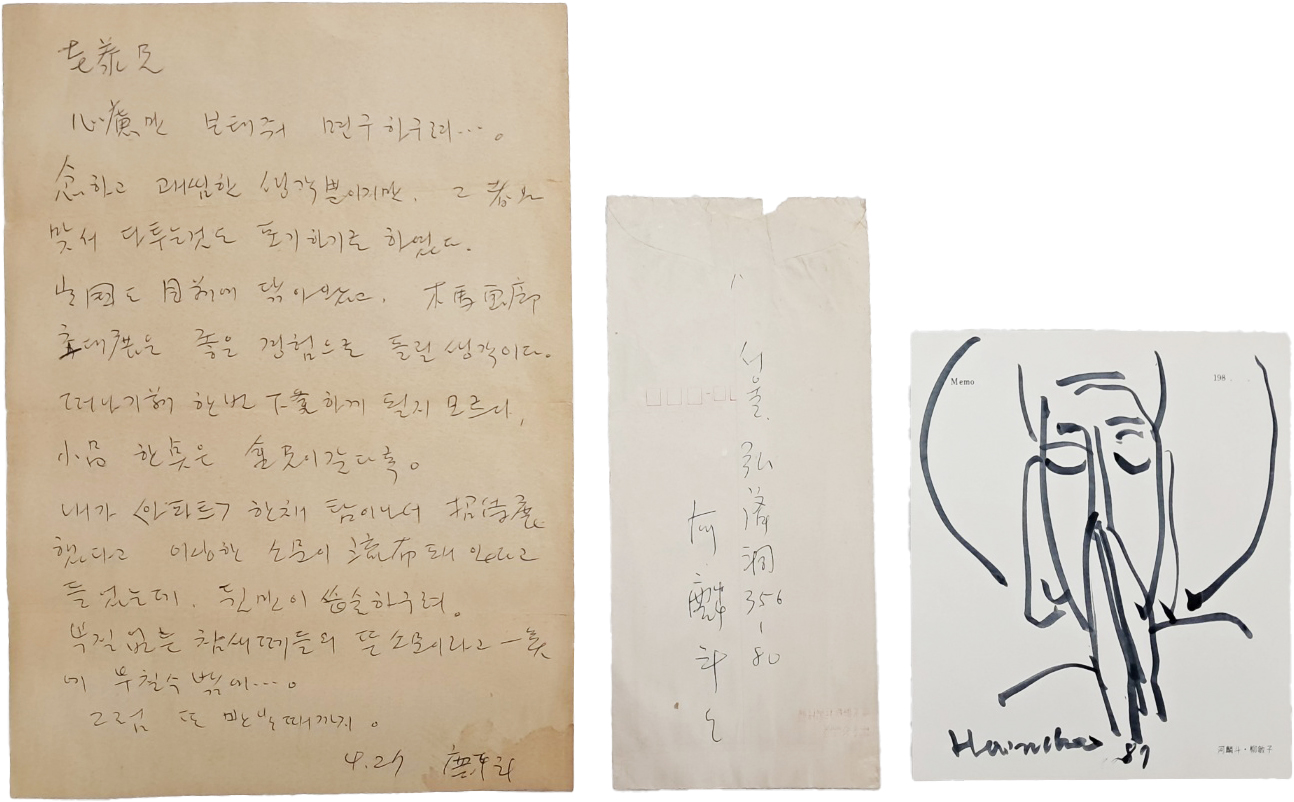 兄
心慮만 보태줘 면구하구려…。
念하고 괘씸한 생각뿐이지만. 그 者와
맞서 다투는것도 포기하기로 하였다.
出国도 目前에 닦아왔고. 木馬画廊
초대展은 좋은 경험으로 돌릴 생각이다.
떠나기前 한번 下 하게 될지 모르나,
小品 한 은
내가 <아파트> 한채 탐이나서 招待展
했다고 이상한 소문이 流布돼 있다고
들었는데. 뒷맛이 씁슬하구려。
부질없는 참새떼들의 뜬소문이라고 一笑
에 부칠수 밖에…。
그럼 또 만날때까지。
4.27 麟斗
서울. 弘濟洞 356-80
河麟斗
Memo
198
Haindoo 89
河麟斗·柳敏子